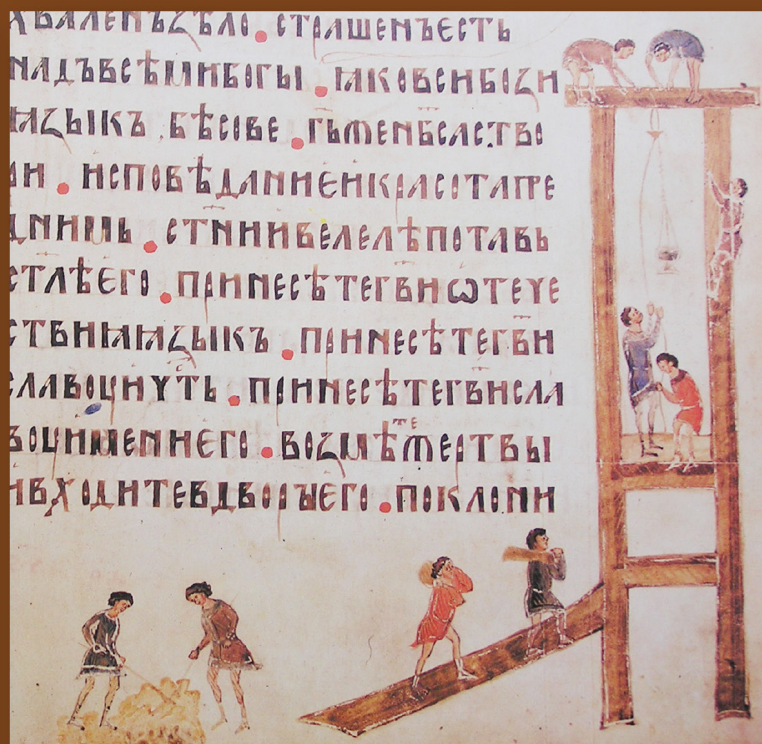 хваленъꙁѣло . страшенъєсть
надъвсѣмибогы . ꙗковсибоꙁи
ꙗꙁыкъ . бѣсове . г҃ьженб҃саство
ри . исповѣданиѥикрасотапре
днимь . ст҃ниивелелѣпотавь
ст҃лѣѥго . принесѣтег҃виѡтече
ствиꙗꙗꙁыкъ . принесѣтег҃ви
славоуичть . принесѣтег҃висла
воуимениѥго . воꙁмѣтежертвы
ивходитевдворыѥго . поклони